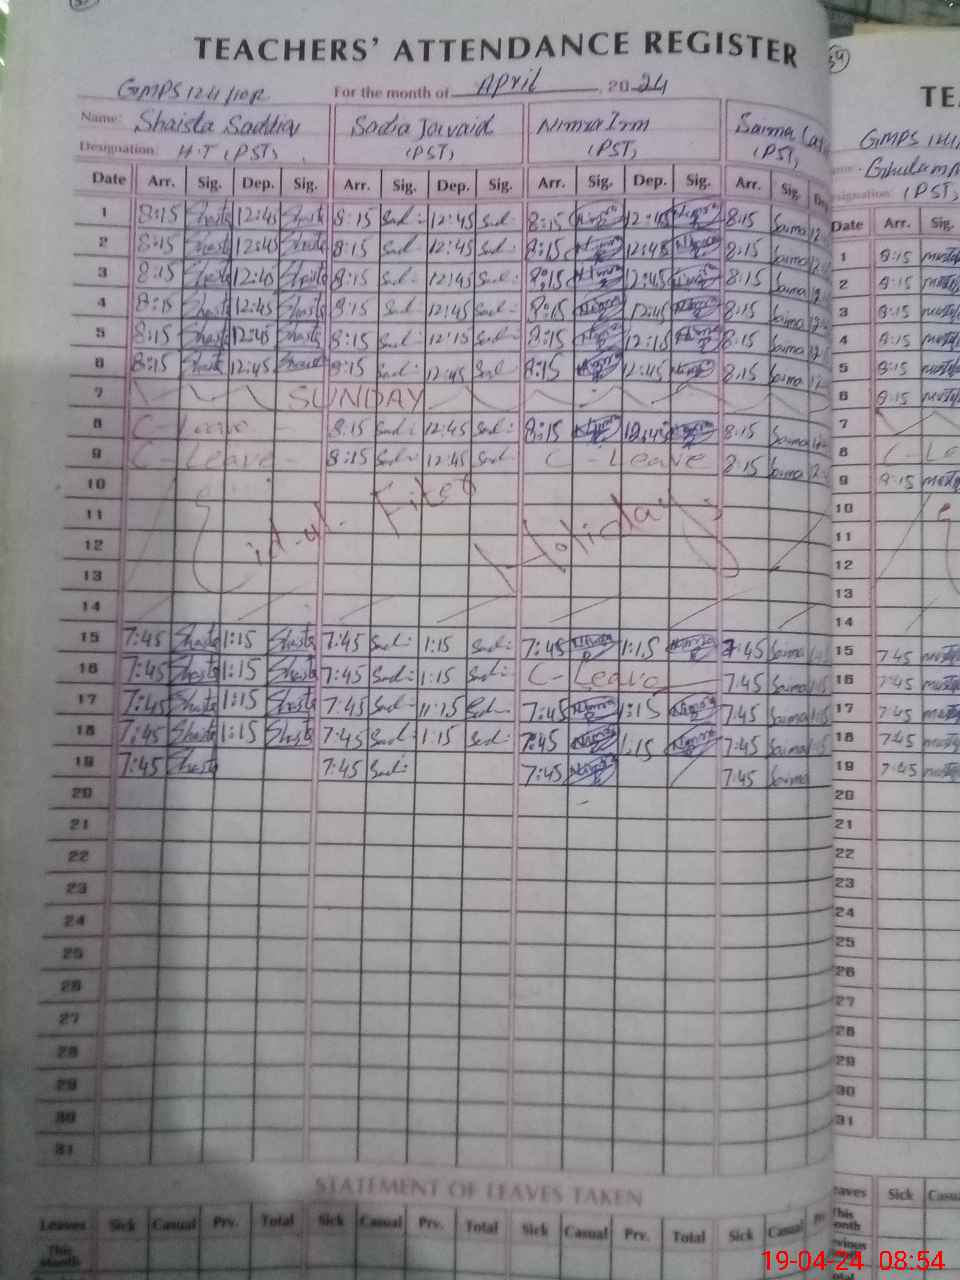 TEACHERS' ATTENDANCE REGISTER
GMPS 124/10R For the month of April, 2024
Name: Shaista Saddia Sadia Javaid Nimra Irm Saima
Designation: H.T (PST) (PST) (PST) (PST)
Date Arr. Sig. Dep. Sig. Arr. Sig. Dep. Sig. Arr. Sig. Dep. Sig. Arr. Sig.
1 8:15 Shaista 12:45 Shaista 8:15 Sad 12:45 Sad 8:15 Nimra 12:45 Nimra 8:15 Saima
2 8:15 Shaista 12:45 Shaista 8:15 Sad 12:45 Sad 8:15 Nimra 12:45 Nimra 8:15 Saima
3 8:15 Shaista 12:45 Shaista 8:15 Sad 12:45 Sad 8:15 Nimra 12:45 Nimra 8:15 Saima
4 8:15 Shaista 12:45 Shaista 8:15 Sad 12:45 Sad 8:15 Nimra 12:45 Nimra 8:15 Saima
5 8:15 Shaista 12:45 Shaista 8:15 Sad 12:15 Sad 8:15 Nimra 12:15 Nimra 8:15 Saima
6 8:15 Shaista 12:45 Shaista 8:15 Sad 12:45 Sad 8:15 Nimra 12:45 Nimra 8:15 Saima
7 SUNDAY
8 C-Leave 8:15 Sad 12:45 Sad 8:15 Nimra 12:45 Nimra 8:15 Saima
9 C-Leave 8:15 Sad 12:45 Sad C-Leave 8:15 Saima
10
11 Eid-ul-Fiter Holidays
12
13
14
15 7:45 Shaista 1:15 Shaista 7:45 Sad 1:15 Sad 7:45 Nimra 1:15 Nimra 7:45 Saima
16 7:45 Shaista 1:15 Shaista 7:45 Sad 1:15 Sad C-Leave 7:45 Saima
17 7:45 Shaista 1:15 Shaista 7:45 Sad 1:15 Sad 7:45 Nimra 1:15 Nimra 7:45 Saima
18 7:45 Shaista 1:15 Shaista 7:45 Sad 1:15 Sad 7:45 Nimra 1:15 Nimra 7:45 Saima
19 7:45 Shaista 7:45 Sad 7:45 Nimra 7:45 Saima
20
21
22
23
24
25
26
27
28
29
30
31
STATEMENT OF LEAVES TAKEN
Leaves Sick Casual Prv. Total Sick Casual Prv. Total Sick Casual Prv. Total Sick Casual
This Month
TE
GMPS 124/
Ghulam
(PST)
Date Arr. Sig.
1 8:15
2 8:15
3 8:15
4 8:15
5 8:15
6 8:15
7
8 C-Le
9 8:15
10
11
12
13
14
15 7:45
16 7:45
17 7:45
18 7:45
19 7:45
20
21
22
23
24
25
26
27
28
29
30
31
Sick
19-04-24 08:54